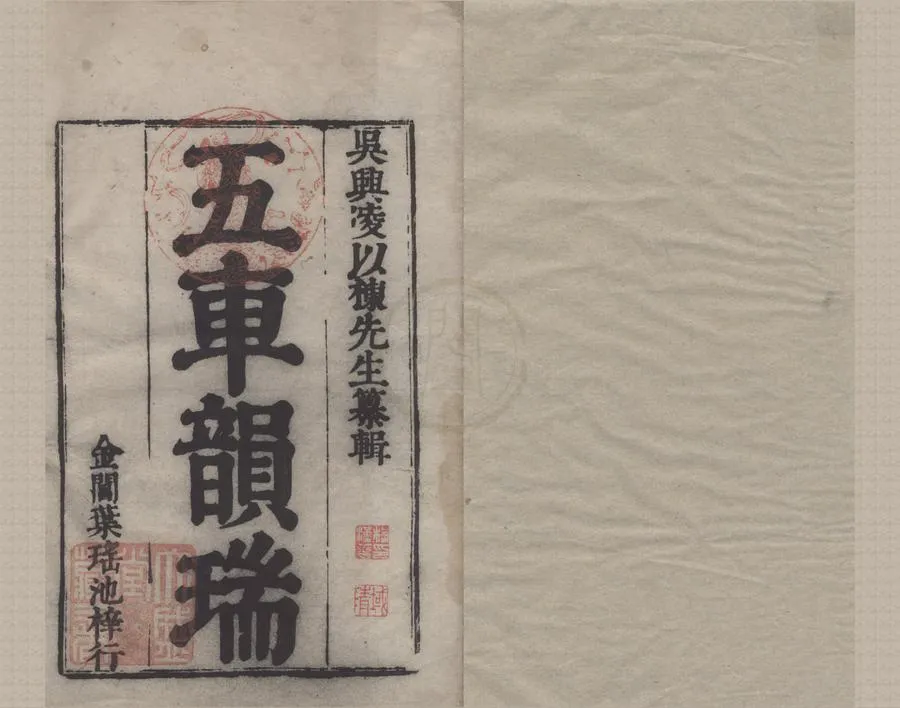 吳興凌以棟先生纂輯
五車韻瑞
金閶葉瑤池梓行